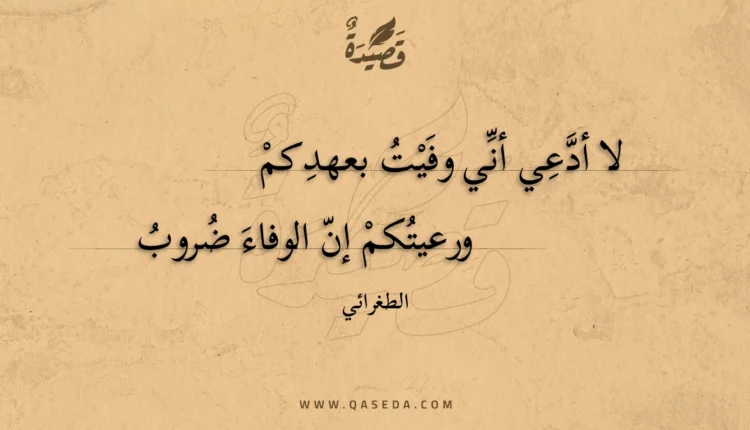 قَصِيْدَةٌ
لا أدَّعِي أنِّي وفَيْتُ بعهدِكمْ
ورعيتُكمْ إنّ الوفاءَ ضُروبُ
الطغرائي
WWW.QASEDA.COM